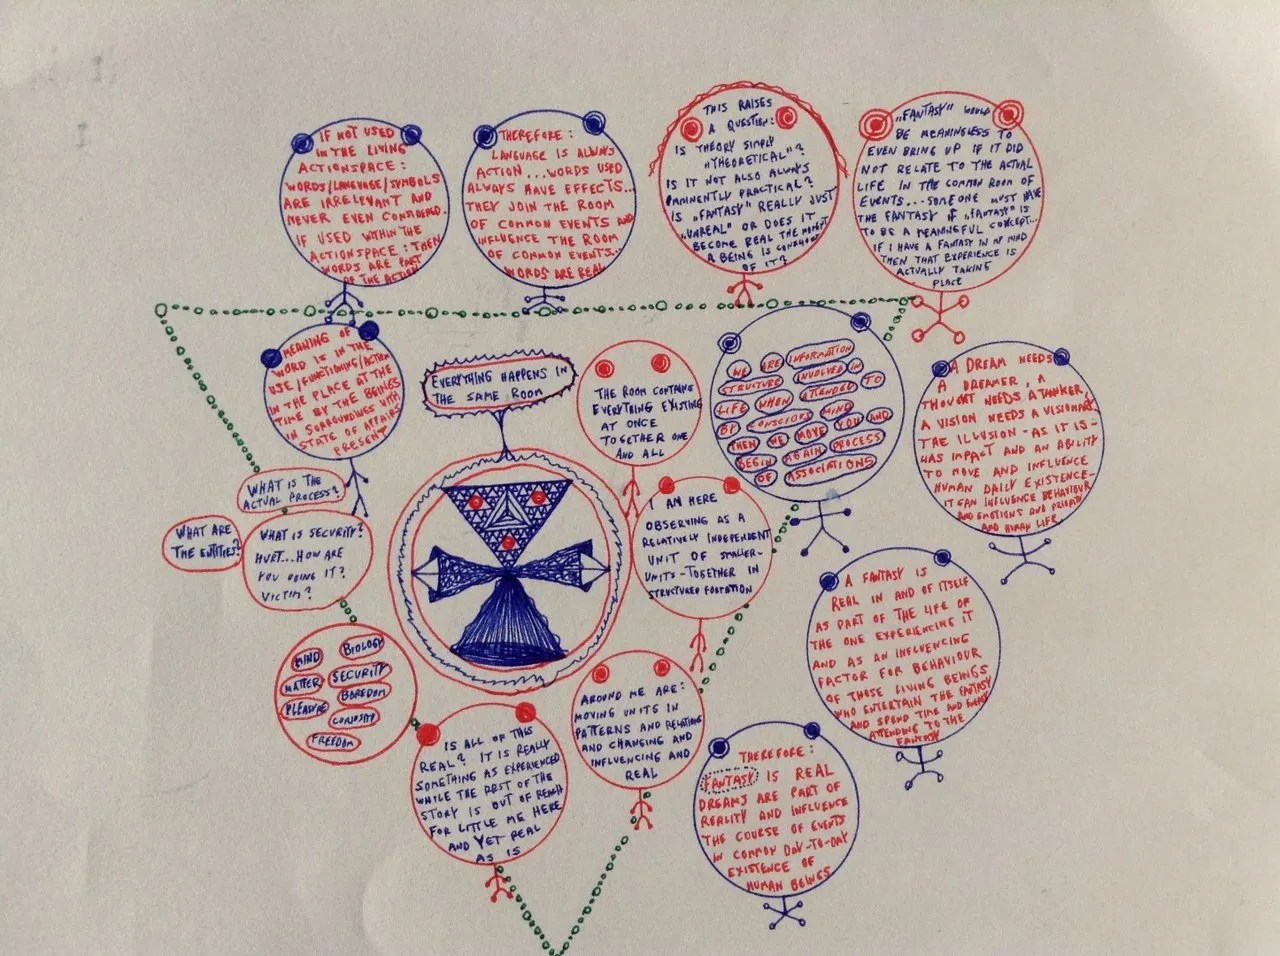 IF NOT USED
IN THE LIVING
ACTIONSPACE:
WORDS/LANGUAGE/SYMBOLS
ARE IRRELEVANT AND
NEVER EVEN CONSIDERED.
IF USED WITHIN THE
ACTIONSPACE: THEN
WORDS ARE PART
OF THE ACTION
THEREFORE:
LANGUAGE IS ALWAYS
ACTION...WORDS USED
ALWAYS HAVE EFFECTS...
THEY JOIN THE ROOM
OF COMMON EVENTS AND
INFLUENCE THE ROOM
OF COMMON EVENTS..
WORDS ARE REAL
THIS RAISES
A QUESTION:
IS THEORY SIMPLY
„THEORETICAL"?
IS IT NOT ALSO ALWAYS
IMMINENTLY PRACTICAL?
IS „FANTASY" REALLY JUST
„UNREAL" OR DOES IT
BECOME REAL THE MOMENT
A BEING IS CONSCIOUS
OF IT?
„FANTASY" WOULD
BE MEANINGLESS TO
EVEN BRING UP IF IT DID
NOT RELATE TO THE ACTUAL
LIFE IN THE COMMON ROOM OF
EVENTS...SOMEONE MUST HAVE
THE FANTASY IF „FANTASY" IS
TO BE A MEANINGFUL CONCEPT...
IF I HAVE A FANTASY IN MY MIND
THEN THAT EXPERIENCE IS
ACTUALLY TAKING
PLACE
MEANING OF
WORD IS IN THE
USE/FUNCTIONING/ACTION
IN THE PLACE AT THE
TIME BY THE BEINGS
IN SURROUNDINGS WITH
STATE OF AFFAIRS
PRESENT
EVERYTHING HAPPENS IN
THE SAME ROOM
THE ROOM CONTAINS
EVERYTHING EXISTING
AT ONCE
TOGETHER ONE
AND ALL
WE ARE INFORMATION
STRUCTURE INVOLVED IN
LIFE WHEN ATTENDED TO
BY CONSCIOUS MIND
THEN WE MOVE YOU AND
BEGIN AGAIN PROCESS
OF ASSOCIATIONS
A DREAM NEEDS
A DREAMER, A
THOUGHT NEEDS A THINKER,
A VISION NEEDS A VISIONARY
THE ILLUSION - AS IT IS -
HAS IMPACT AND AN ABILITY
TO MOVE AND INFLUENCE
HUMAN DAILY EXISTENCE-
IT CAN INFLUENCE BEHAVIOUR
AND EMOTIONS AND
AND HUMAN LIFE.
WHAT IS THE
ACTUAL PROCESS?
WHAT ARE
THE ENTITIES?
WHAT IS SECURITY?
HURT...HOW ARE
YOU DOING IT?
VICTIM?
I AM HERE
OBSERVING AS A
RELATIVELY INDEPENDENT
UNIT OF SMALLER-
UNITS-TOGETHER IN
STRUCTURED FORMATION
A FANTASY IS
REAL IN AND OF ITSELF
AS PART OF THE LIFE OF
THE ONE EXPERIENCING IT
AND AS AN INFLUENCING
FACTOR FOR BEHAVIOUR
OF THOSE LIVING BEINGS
WHO ENTERTAIN THE FANTASY
AND SPEND TIME AND ENERGY
ATTENDING TO THE
FANTASY
MIND BIOLOGY
MATTER SECURITY
PLEASURE BOREDOM
CURIOSITY
FREEDOM
AROUND ME ARE:
MOVING UNITS IN
PATTERNS AND RELATIONS
AND CHANGING AND
INFLUENCING AND
REAL
IS ALL OF THIS
REAL? IT IS REALLY
SOMETHING AS EXPERIENCED
WHILE THE REST OF THE
STORY IS OUT OF REACH
FOR LITTLE ME HERE
AND YET REAL
AS IS
THEREFORE:
FANTASY IS REAL
DREAMS ARE PART OF
REALITY AND INFLUENCE
THE COURSE OF EVENTS
IN COMMON DAY-TO-DAY
EXISTENCE OF
HUMAN BEINGS